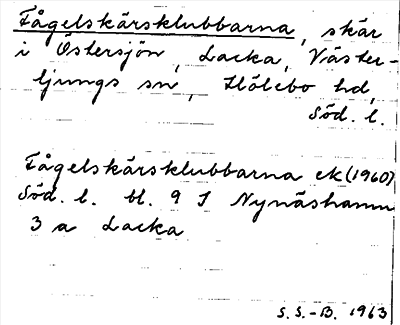 Fågelskärsklubbarna, skär
i Östersjön, Lacka, Väster-
ljungs sn, Hölebo hd,
Söd. l.
Fågelskärsklubbarna ek (1960)
Söd. l. bl. 9 I Nynäshamn
3 a Lacka
S.S.-B. 1963